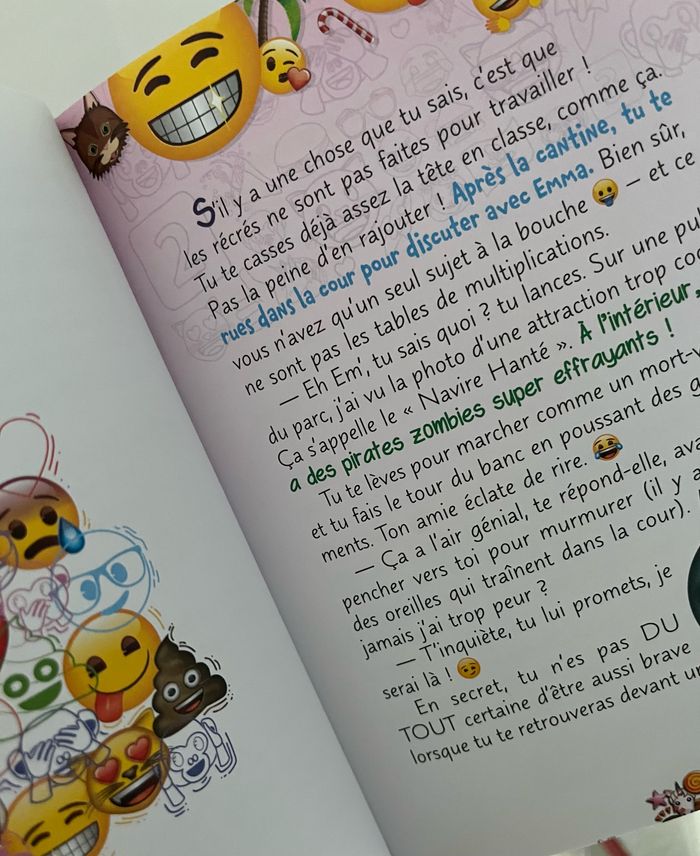 S'il y a une chose que tu sais, c'est que
les récrés ne sont pas faites pour travailler !
Tu te casses déjà assez la tête en classe, comme ça.
Pas la peine d'en rajouter ! Après la cantine, tu te
rues dans la cour pour discuter avec Emma. Bien sûr,
vous n'avez qu'un seul sujet à la bouche 😀 – et ce
ne sont pas les tables de multiplications.
– Eh Em', tu sais quoi ? tu lances. Sur une
du parc, j'ai vu la photo d'une attraction trop
Ça s'appelle le « Navire Hanté ». À l'intérieur,
a des pirates zombies super effrayants !
Tu te lèves pour marcher comme un
et tu fais le tour du banc en poussant des
ments. Ton amie éclate de rire. 😂
– Ça a l'air génial, te répond-elle,
pencher vers toi pour murmurer (il y
des oreilles qui traînent dans la cour).
jamais j'ai trop peur ?
– T'inquiète, tu lui promets, je
serai là ! 😉
En secret, tu n'es pas DU
TOUT certaine d'être aussi brave
lorsque tu te retrouveras devant